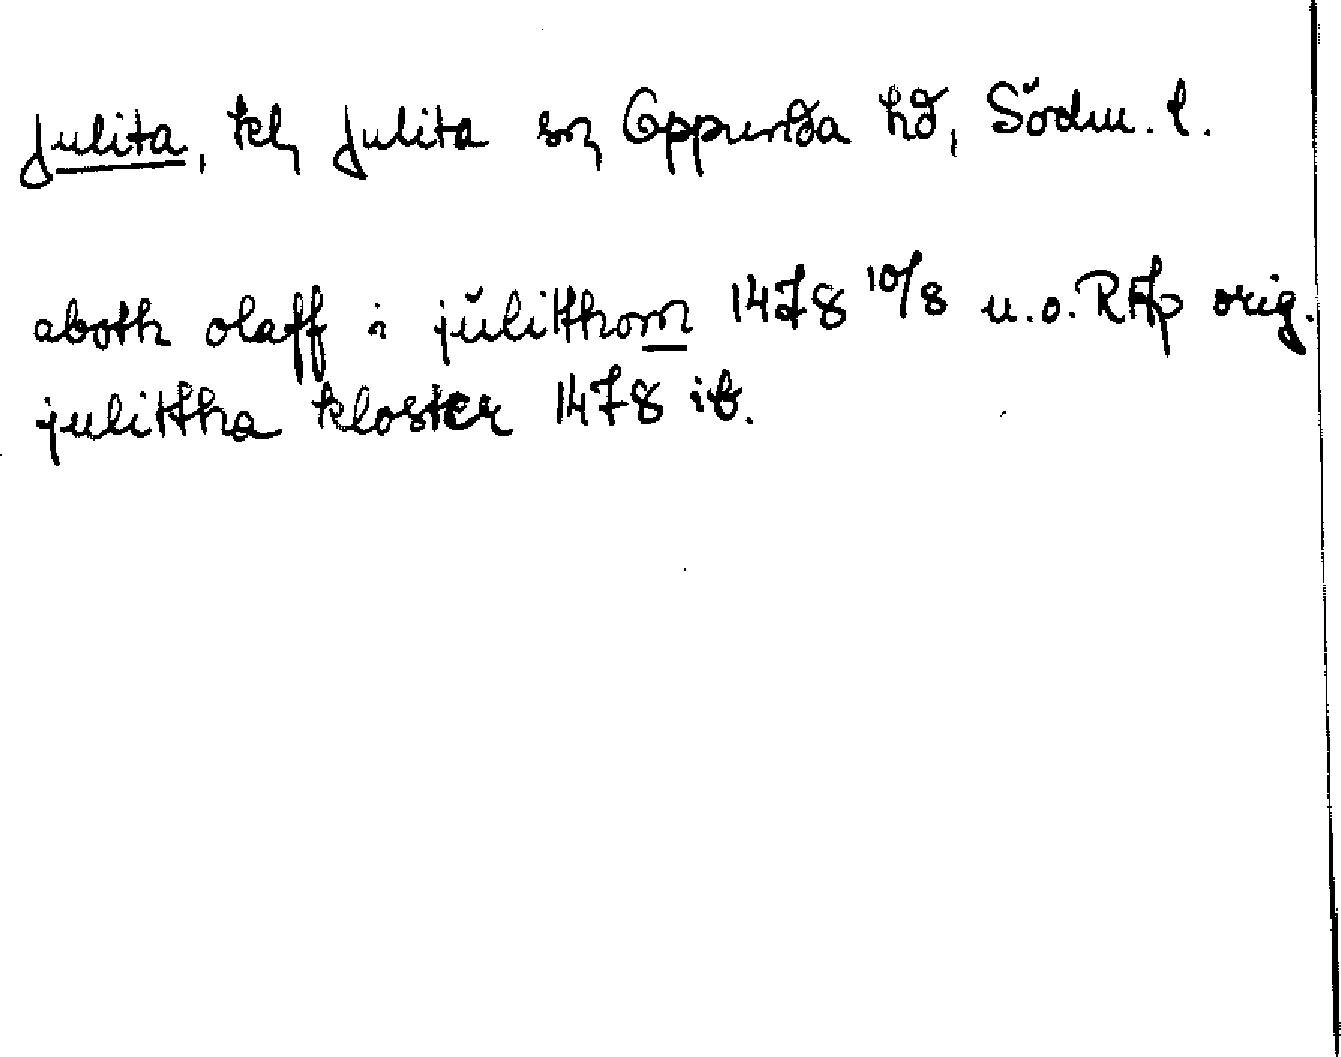 Julita, kl, Julita sn, Oppunda hd, Södm. l.
aboth olaff i jŭlitthom 1478 10/8 u.o. RAp orig.
julittha kloster 1478 ib.